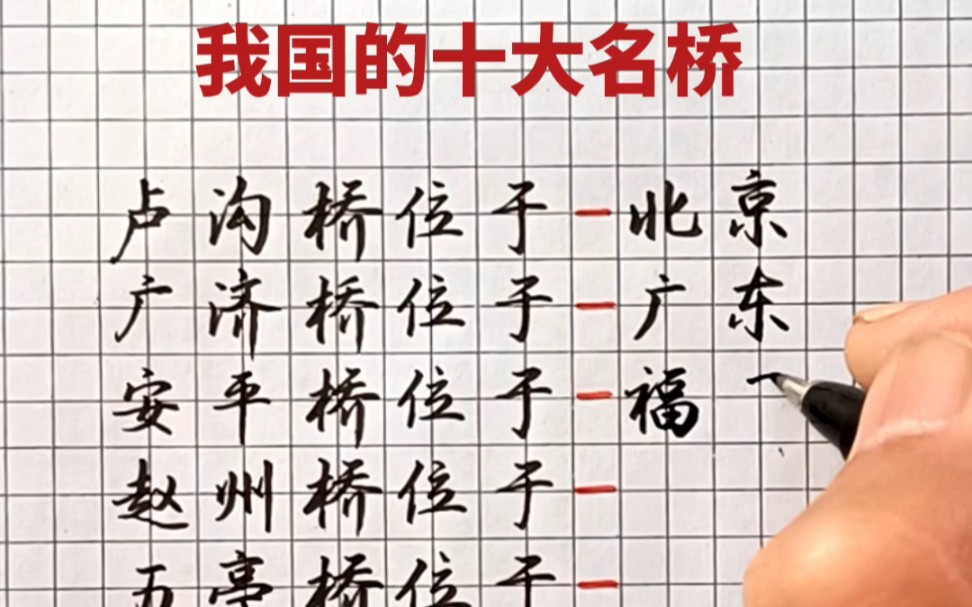 我国的十大名桥
卢沟桥位于-北京
广济桥位于-广东
安平桥位于-福
赵州桥位于-
五亭桥位于-